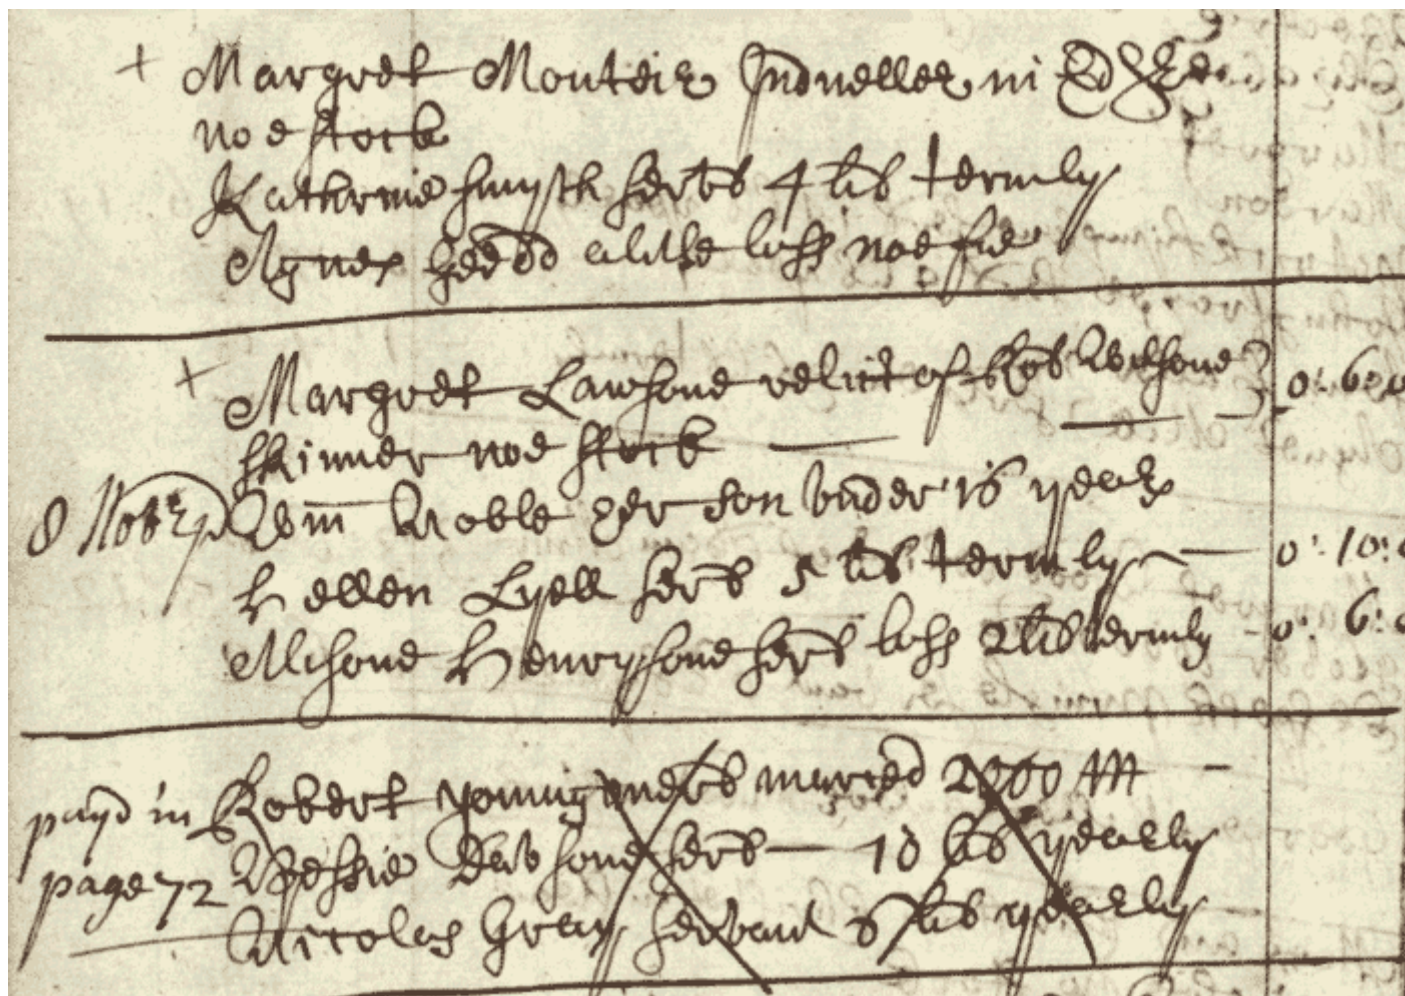 + Margret Monteir Indueller in Edr
noe stock
Kathrine Smyth servt 4 lib termly
Agnes a litle lass noe fie
+ Margret Lawsone relict of Rob Watsone 0: 6: 0
skinner noe stock
8 Nobr pd Wm Noble her son under 16 yeares
Hellen Lyell servt 5 lib termly 0: 10: 0
Alisone Henrysone servt lass 2 lib termly 0: 6: 0
payd in Robert young mert married 2000 M
page 72 Bessie Dewsone servt 10 lib yearly
Nicolas Gray servant 8 lib yearly